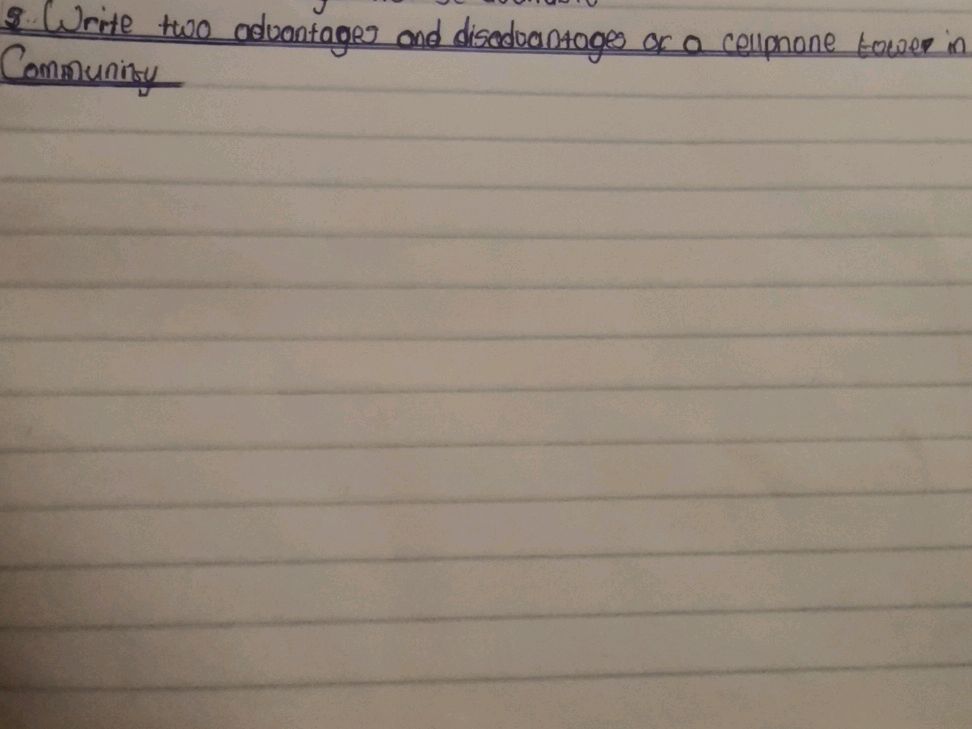 Write two advantages and disadvantages of a cellphone tower in
Community